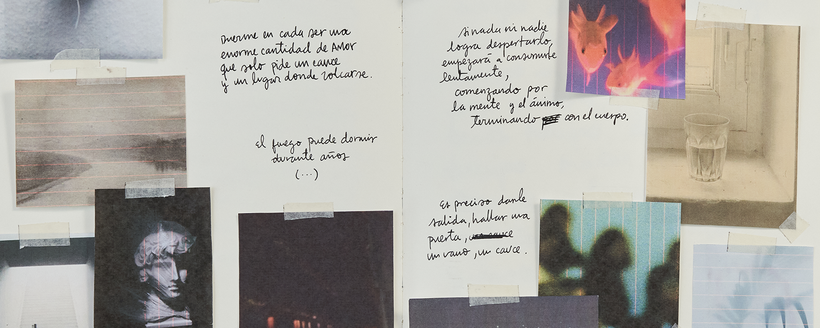 Duerme en cada ser una
enorme cantidad de Amor
que solo pide un cauce
y un lugar donde volcarse.
el fuego puede dormir
durante años
(...)
si nada ni nadie
logra despertarlo,
empezará a consumirte
lentamente,
comenzando por
la mente y el ánimo,
terminando con el cuerpo.
Es preciso darle
salida, hallar una
puerta,
un vano, un cauce.